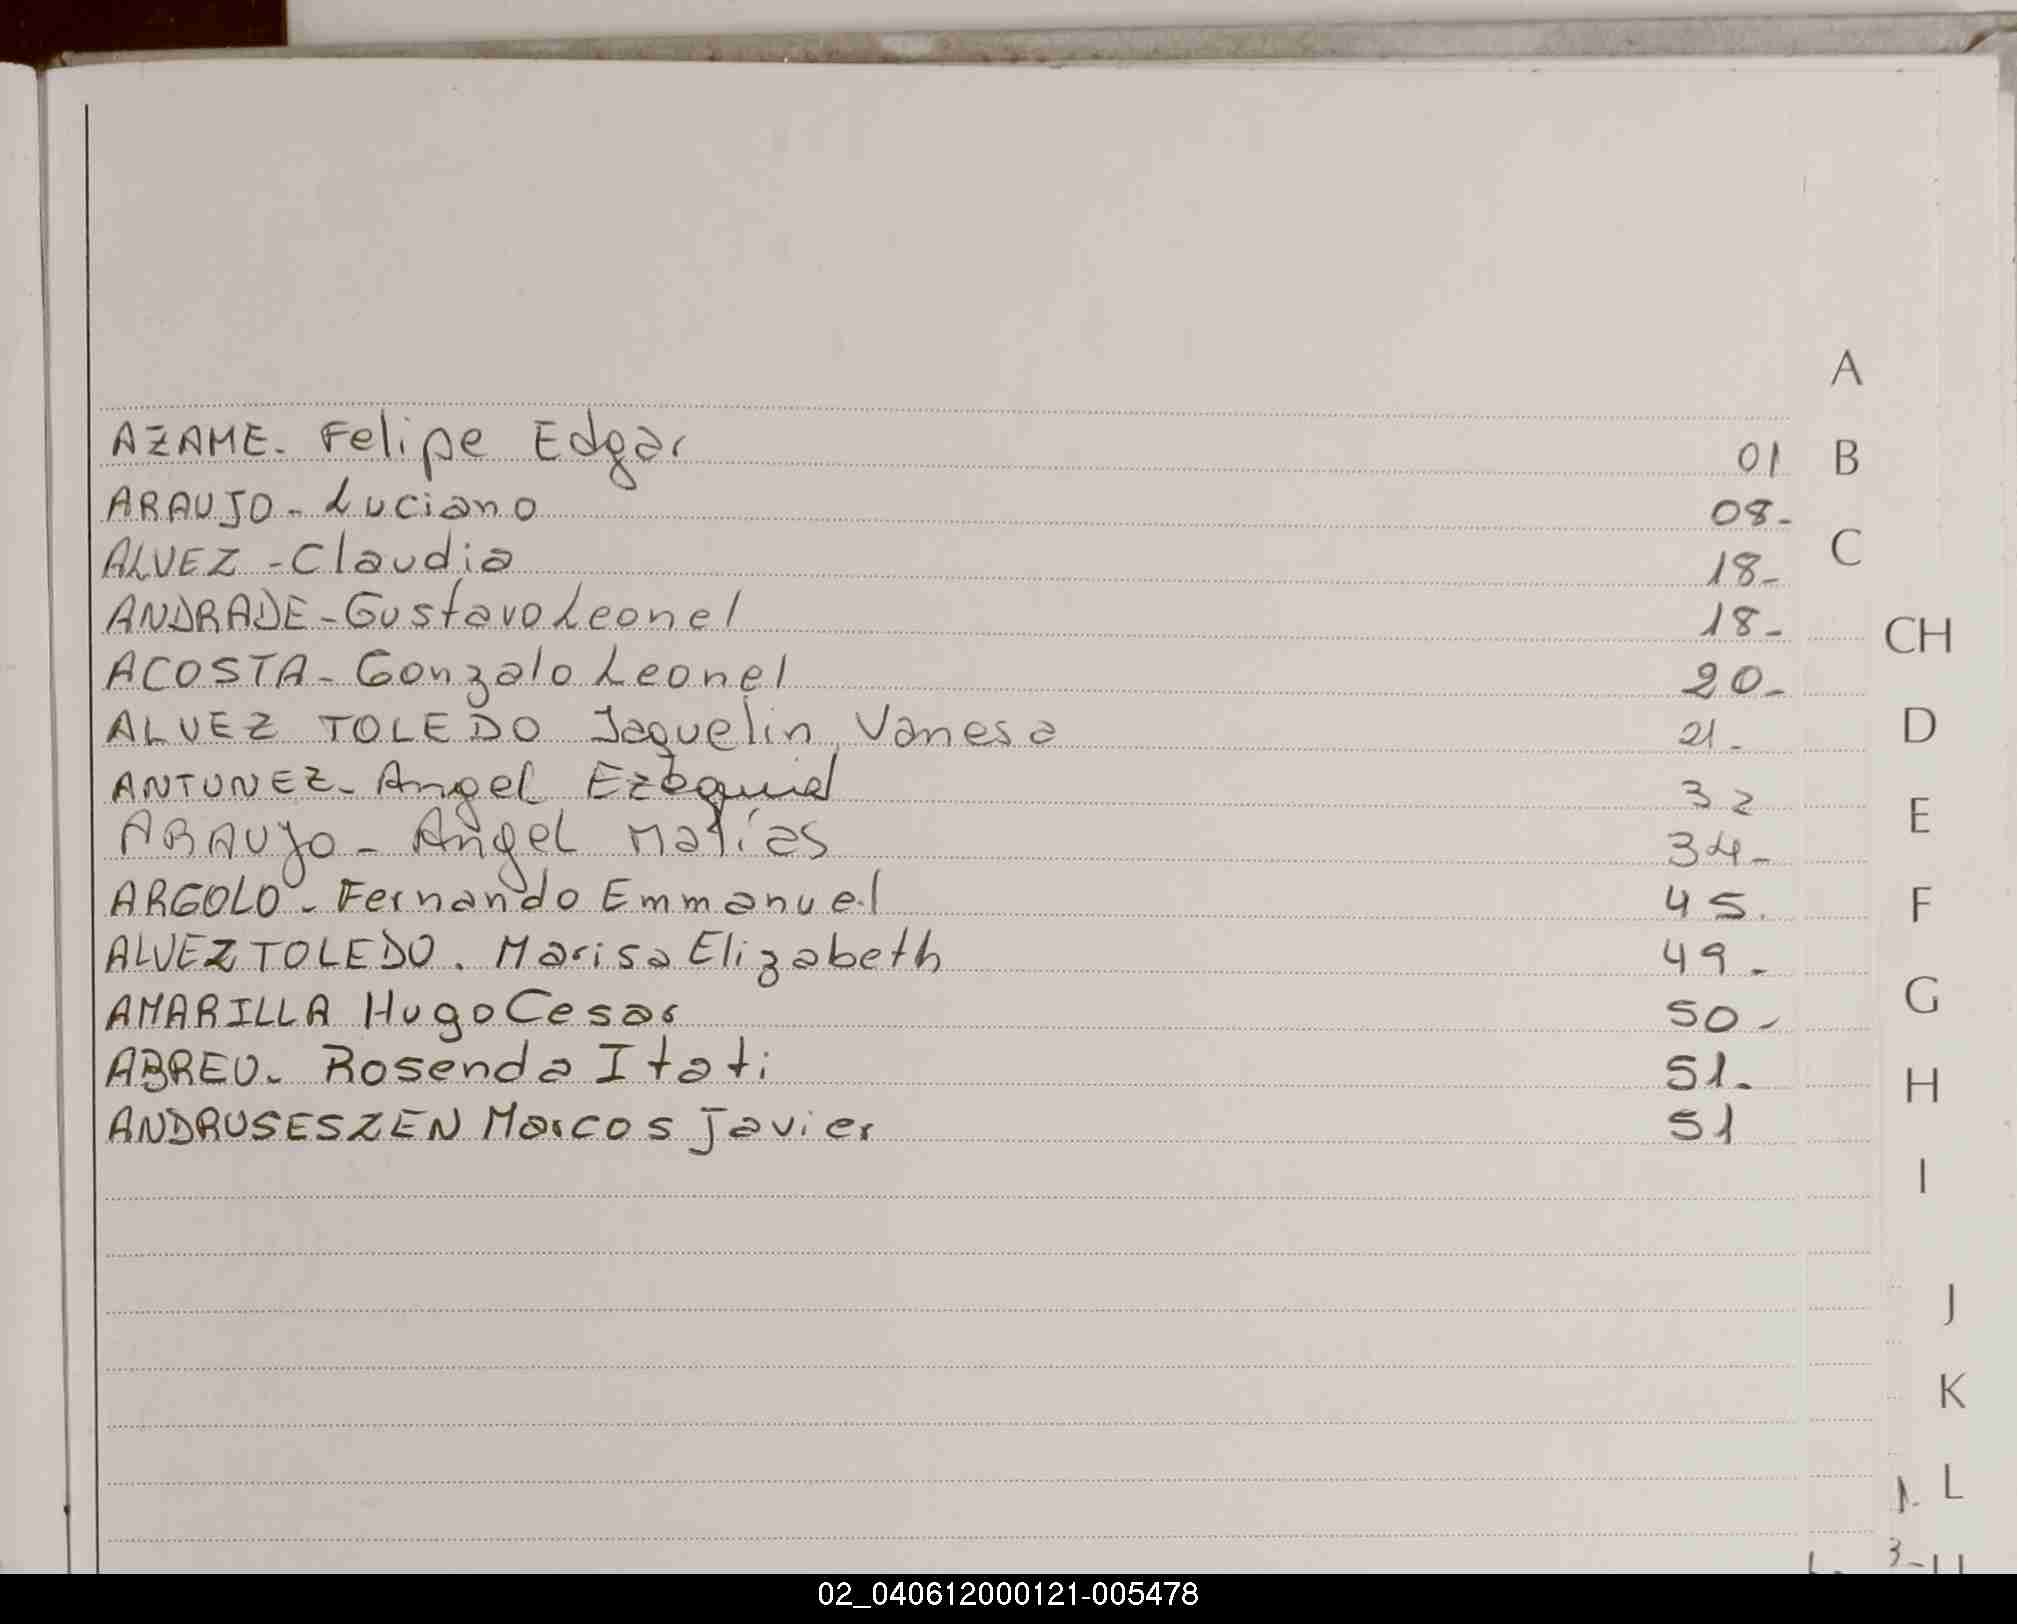 AZAME. Felipe Edgar 01
ARAUJO - Luciano 08-
ALVEZ - Claudia 18-
ANDRADE - Gustavo Leonel 18-
ACOSTA - Gonzalo Leonel 20-
ALVEZ TOLEDO Jaquelin Vanesa 21-
ANTUNEZ - Angel Ezequiel 32
ARAUJO - Angel Matías 34-
ARGOLO - Fernando Emmanuel 45.
ALVEZ TOLEDO. Marisa Elizabeth 49-
AMARILLA Hugo Cesar 50-
ABREU. Rosenda Itati 51.
ANDRUSESZEN Marcos Javier 51
A
B
C
CH
D
E
F
G
H
I
J
K
L
02_040612000121-005478